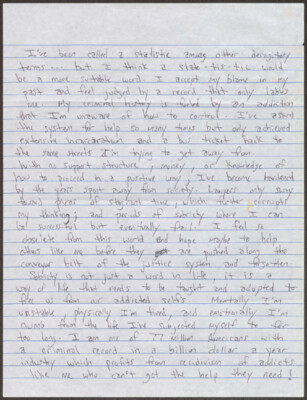 I've been called a statistic among other derogitory
terms... but I think a stale-tis-tic would
be a more suitable word. I accept my blame in my
past and feel judged by a record that only lables
me. My criminal history is fueled by an addiction
that I'm unaware of how to control. I've asked
the system for help so many times but only achieved
extensive incarceration and a bus ticket back to
the same streets I'm trying to get away from.
With no support structure, money, or knowledge of
how to proceed in a positive way, I've become hardened
by the years spent away from society. Lawyers only sway
toward pleas of stagnant time, which further corrupts
my thinking; and periods of sobriety where I can
be successful but eventually fail! I feel so
obsolete from this world and hope maybe to help
others like me before they are pushed along the
conveyer belt of the justice system and forgotten.
Sobriety is not just a word in life, it is a
way of life that needs to be taught and adapted to
free us from our addicted selfs. Mentally I'm
unstable, physically I'm tired, and emotionally I'm
numb from the life I've subjected myself to for
too long. I am one of 77 million Americans with
a criminal record in a billion dollar a year
industry which profits from recidivism of addicts
like me who can't get the help they need!